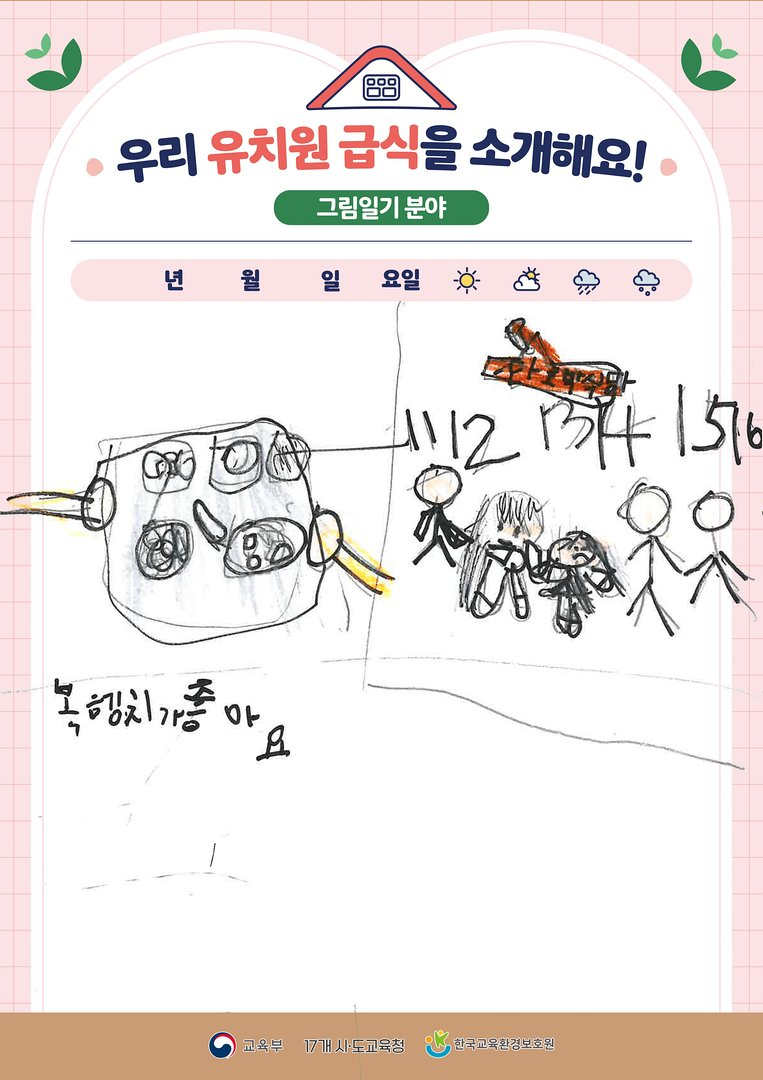 우리 유치원 급식을 소개해요!
그림일기 분야
년 월 일 요일
1112 1314 1516
복헹치가좋아
요
교육부 17개 시·도교육청 한국교육환경보호원